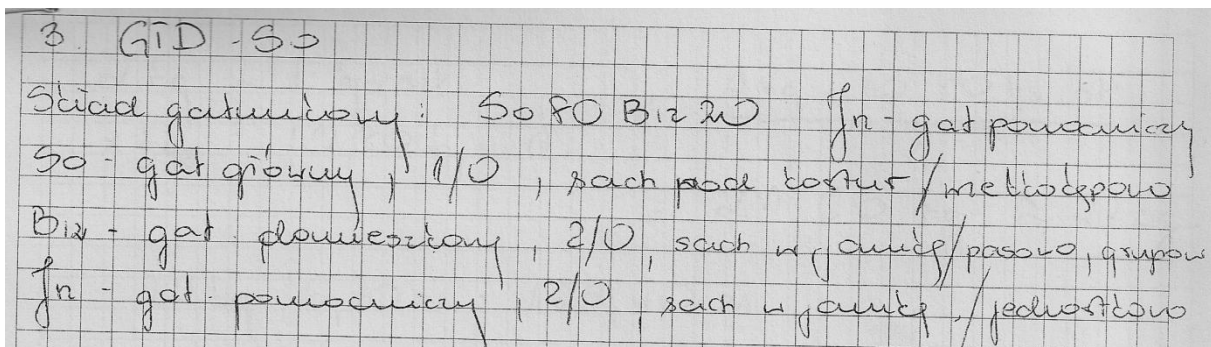 3. GTD - So
Skład gatunkowy: So 80 Brz 20 Jn - gat pomocniczy
So - gat główny, 1/0, sadz pod kostur/
Brz - gat domieszkowy, 2/0, sadz w jamkę/pasowo, grupow
Jn - gat. pomocniczy, 2/0, sadz w jamkę,/jednostkowo